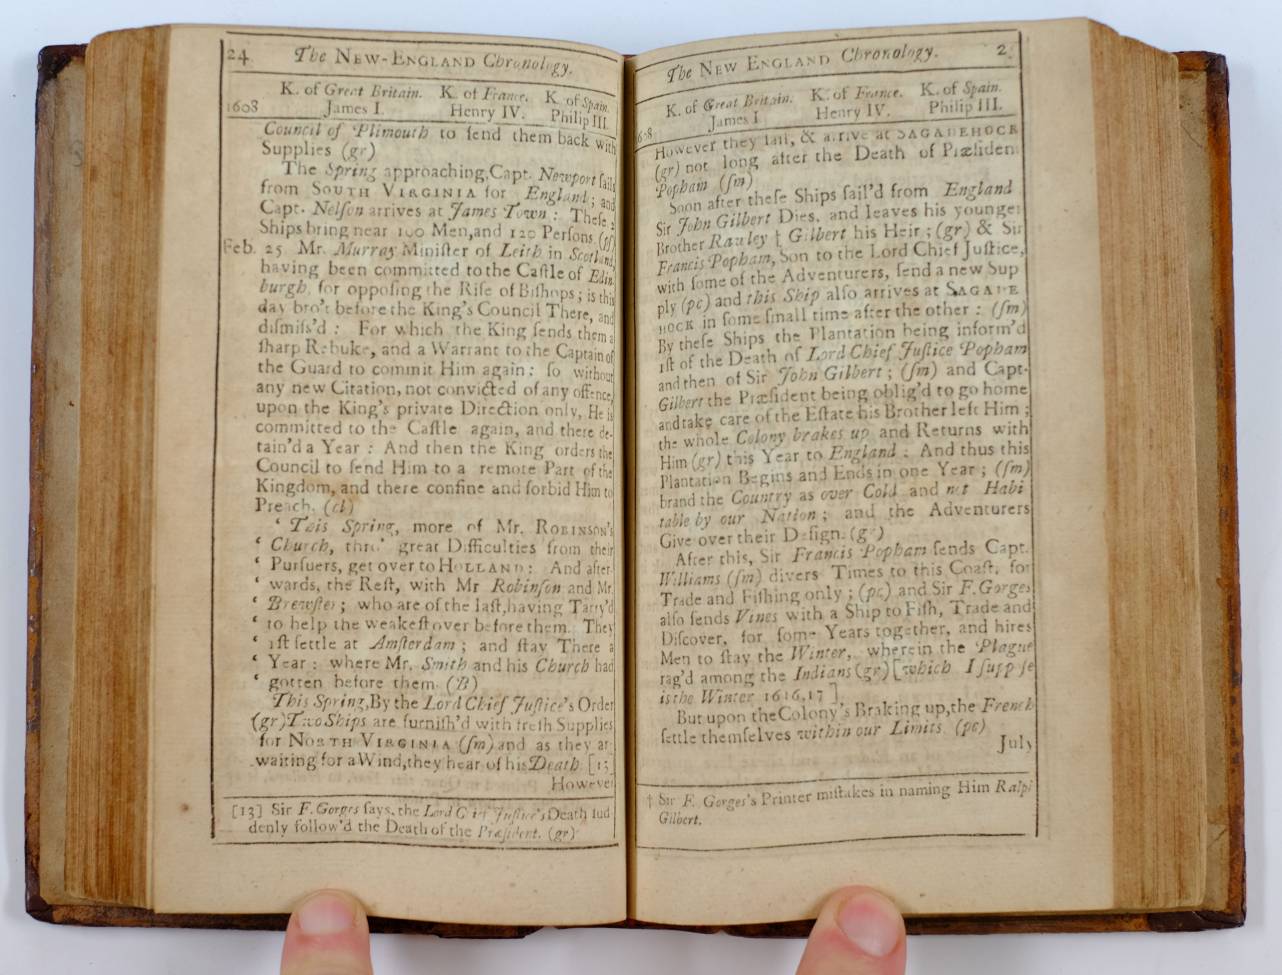 24 The NEW-ENGLAND Chronology.
K. of Great Britain. K. of France. K. of Spain.
1608 James I. Henry IV. Philip III.
Council of Plimouth to ſend them back with
Supplies (gr)
The Spring approaching, Capt. Newport ſails
from SOUTH VIRGINIA for England; and
Capt. Nelſon arrives at James Town: Theſe 2
Ships bring near 100 Men, and 120 Perſons.
Feb. 25. Mr. Murray Miniſter of Leith in Scotland,
having been committed to the Caſtle of Edin
burgh, for oppoſing the Riſe of Biſhops; is this
day bro't before the King's Council There, and
diſmiſs'd: For which the King ſends them a
ſharp Rebuke, and a Warrant to the Captain of
the Guard to commit Him again: ſo without
any new Citation, not convicted of any offence,
upon the King's private Direction only, He is
committed to the Caſtle again, and there de-
tain'd a Year: And then the King orders the
Council to ſend Him to a remote Part of the
Kingdom, and there confine and forbid Him to
Preach. (cl)
‘ This Spring, more of Mr. ROBINSON's
‘ Church, thro' great Difficulties from their
‘ Purſuers, get over to HOLLAND: And after-
‘ wards, the Reſt, with Mr Robinſon and Mr.
‘ Brewſter; who are of the laſt, having Tarry'd
‘ to help the weakeſt over before them. They
‘ 1ſt ſettle at Amſterdam; and ſtay There a
‘ Year: where Mr. Smith and his Church had
‘ gotten before them. (B)
This Spring, By the Lord Chief Juſtice's Order
(gr) Two Ships are furniſh'd with freſh Supplies
for NORTH VIRGINIA (ſm) and as they are
waiting for a Wind, they hear of his Death. [13]
However
[13] Sir F. Gorges ſays, the Lord Chief Juſtice's Death ſud
denly follow'd the Death of the Præſident. (gr)
The NEW ENGLAND Chronology. 2
K. of Great Britain. K. of France. K. of Spain.
608 James I. Henry IV. Philip III.
However they ſail, & arrive at SAGADEHOCK
(gr) not long after the Death of Præſident
Popham (ſm)
Soon after theſe Ships ſail'd from England
Sir John Gilbert Dies, and leaves his younger
Brother Rawley † Gilbert his Heir; (gr) & Sir
Francis Popham, Son to the Lord Chief Juſtice,
with ſome of the Adventurers, ſend a new Sup
ply (pc) and this Ship alſo arrives at SAGADE
HOCK in ſome ſmall time after the other: (ſm)
By theſe Ships the Plantation being inform'd
1ſt of the Death of Lord Chief Juſtice Popham
and then of Sir John Gilbert; (ſm) and Capt.
Gilbert the Præſident being oblig'd to go home
and take care of the Eſtate his Brother left Him;
the whole Colony brakes up and Returns with
Him (gr) this Year to England: And thus this
Plantation Begins and Ends in one Year; (ſm)
brand the Country as over Cold and not Habi
table by our Nation; and the Adventurers
Give over their Deſign. (gr)
After this, Sir Francis Popham ſends Capt.
Williams (ſm) divers Times to this Coaſt, for
Trade and Fiſhing only; (pc) and Sir F. Gorges
alſo ſends Vines with a Ship to Fiſh, Trade and
Diſcover, for ſome Years together, and hires
Men to ſtay the Winter, wherein the Plague
rag'd among the Indians (gr) [which I ſuppoſe
is the Winter 1616,17].
But upon the Colony's Braking up, the French
ſettle themſelves within our Limits (pc)
July
† Sir F. Gorges's Printer miſtakes in naming Him Ralph
Gilbert.